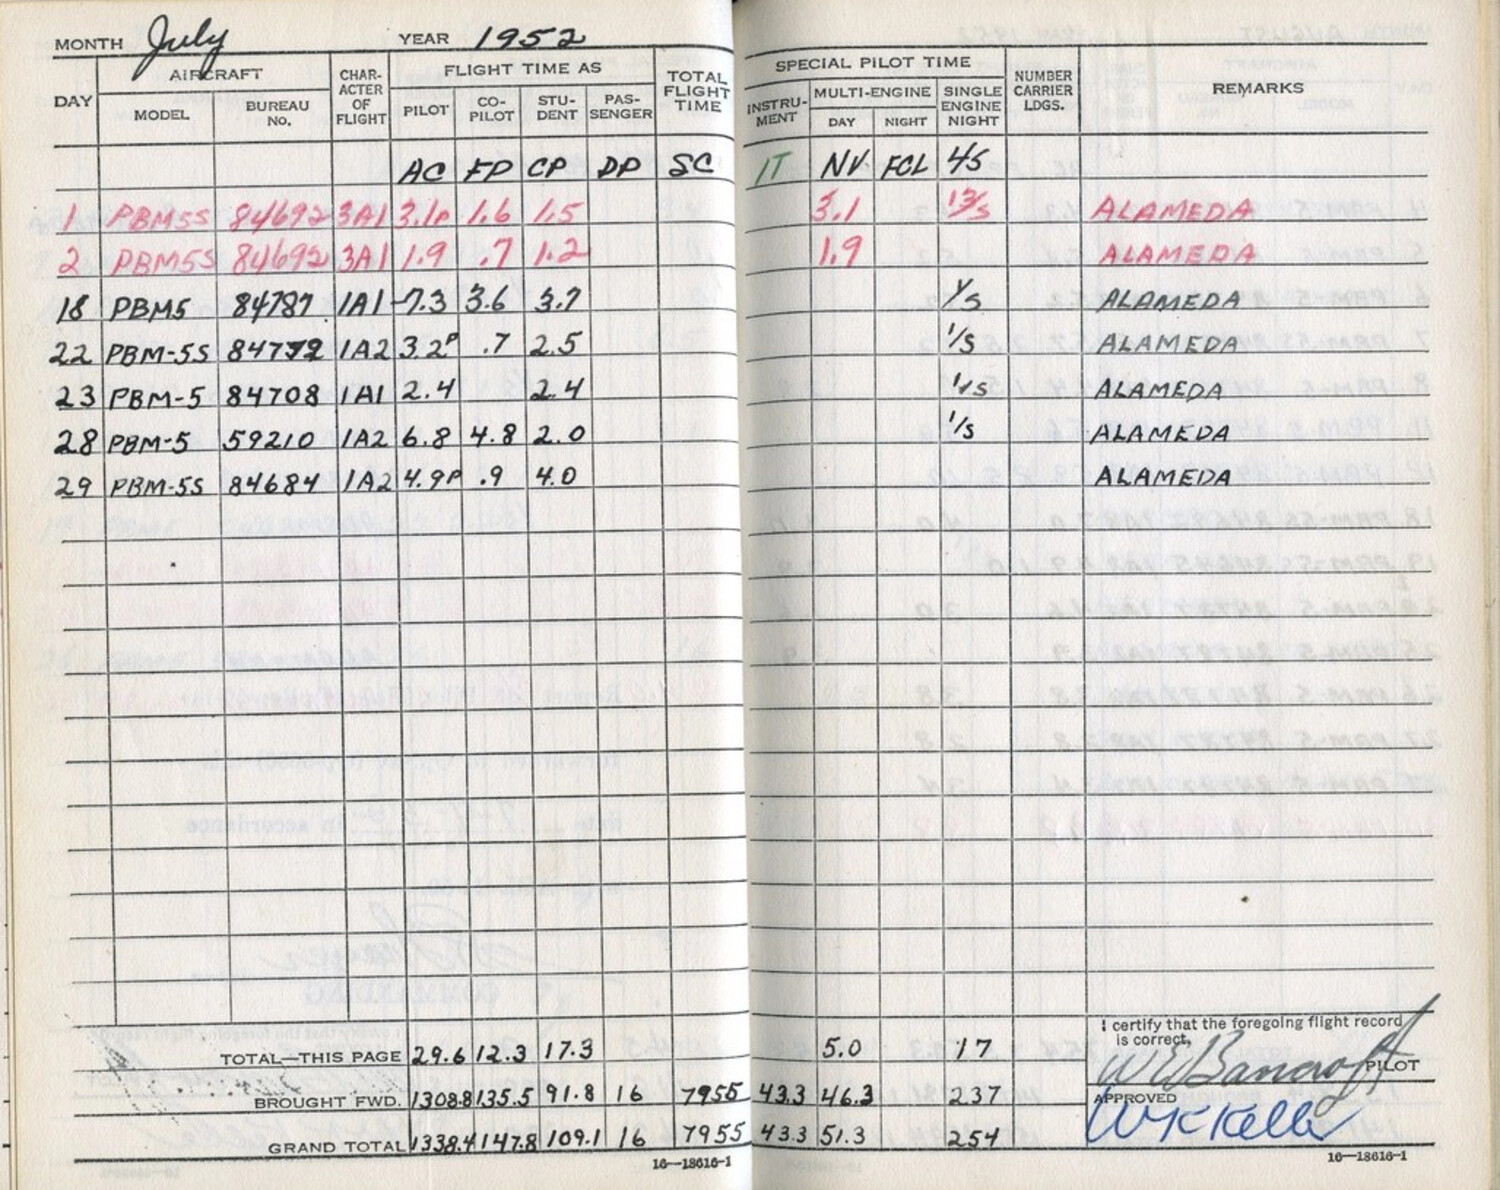 MONTH July YEAR 1952
DAY AIRCRAFT MODEL BUREAU NO. CHARACTER OF FLIGHT FLIGHT TIME AS PILOT CO-PILOT STUDENT PASSENGER TOTAL FLIGHT TIME SPECIAL PILOT TIME INSTRUMENT MULTI-ENGINE DAY NIGHT SINGLE ENGINE NIGHT NUMBER CARRIER LDGS. REMARKS
AC FP CP DP SC IT NV FCL 4S
1 PBM5S 84692 3A1 3.1P 1.6 1.5 3.1 13/S ALAMEDA
2 PBM5S 84692 3A1 1.9 .7 1.2 1.9 ALAMEDA
18 PBM5 84787 1A1 7.3 3.6 3.7 1/S ALAMEDA
22 PBM-5S 84772 1A2 3.2P .7 2.5 1/S ALAMEDA
23 PBM-5 84708 1A1 2.4 2.4 1/S ALAMEDA
28 PBM-5 59210 1A2 6.8 4.8 2.0 1/S ALAMEDA
29 PBM-5S 84684 1A2 4.9P .9 4.0 ALAMEDA
I certify that the foregoing flight record is correct,
TOTAL—THIS PAGE 29.6 12.3 17.3 5.0 17 W E Bancroft PILOT
BROUGHT FWD. 1308.8 135.5 91.8 16 7955 43.3 46.3 237 APPROVED
GRAND TOTAL 1338.4 147.8 109.1 16 7955 43.3 51.3 254 W K Kelle
16—18616-1 16—18616-1